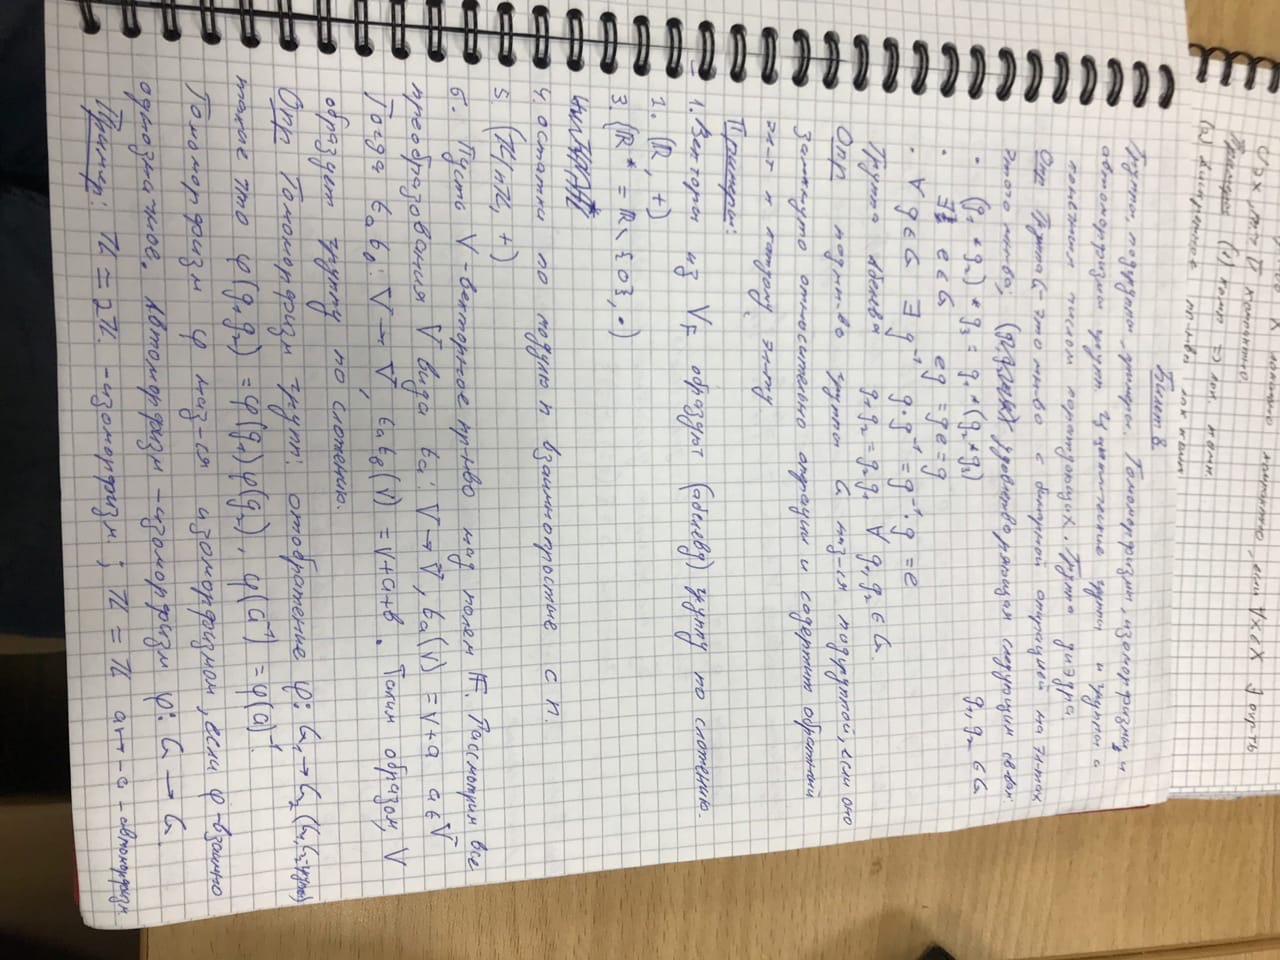 X локально компактно, если ∀x∈X ∃ окр-ть
U∋x, т.ч. Ū компактно.
Примеры (1) комп ⇒ лок. комп.
(2) дискретное пр-тво лок комп
Билет 8
Группы, подгруппы, примеры. Гомоморфизмы, изоморфизмы и
автоморфизмы групп. Циклические группы и группы с
конечным числом порождающих. Группа диэдра.
Опр Группа G - это мн-во с бинарной операцией на эл-тах
этого мн-ва, удовлетворяющая следующим св-вам
• (g₁ * g₂) * g₃ = g₁ * (g₂ * g₃) g₁, g₂ ∈ G
• ∃ e ∈ G eg = ge = g
• ∀ g ∈ G ∃ g⁻¹ g·g⁻¹ = g⁻¹·g = e
Группа Абелева g₁g₂ = g₂g₁ ∀ g₁, g₂ ∈ G.
Опр подмн-во группы G наз-ся подгруппой, если оно
замкнуто относительно операции и содержит обратный
эл-т к каждому эл-ту
Примеры:
1. Векторы из V_F образуют (абелеву) группу по сложению.
2. (ℝ, +)
3. (ℝ* = ℝ \ {0}, •)
4. остатки по модулю n взаимнопростые с n.
5. (ℤ/nℤ, +)
6. Пусть V - векторное пр-нво над полем F. Рассмотрим все
преобразования V вида tₐ: V → V, tₐ(v) = v+a a∈V
Тогда tₐt_b: V → V, tₐt_b(v) = v+a+b. Таким образом, V
образует группу по сложению.
Опр Гомоморфизм групп: отображение φ: G₁ → G₂ (G₁, G₂ - группы)
такие что φ(g₁g₂) = φ(g₁)φ(g₂), φ(a⁻¹) = φ(a)⁻¹.
Гомоморфизм φ наз-ся изоморфизмом, если φ - взаимно
однозначное. Автоморфизм - изоморфизм φ: G → G.
Пример: ℤ ≅ 2ℤ - изоморфизм; ℤ ≅ ℤ a ↦ -a - автоморфизм